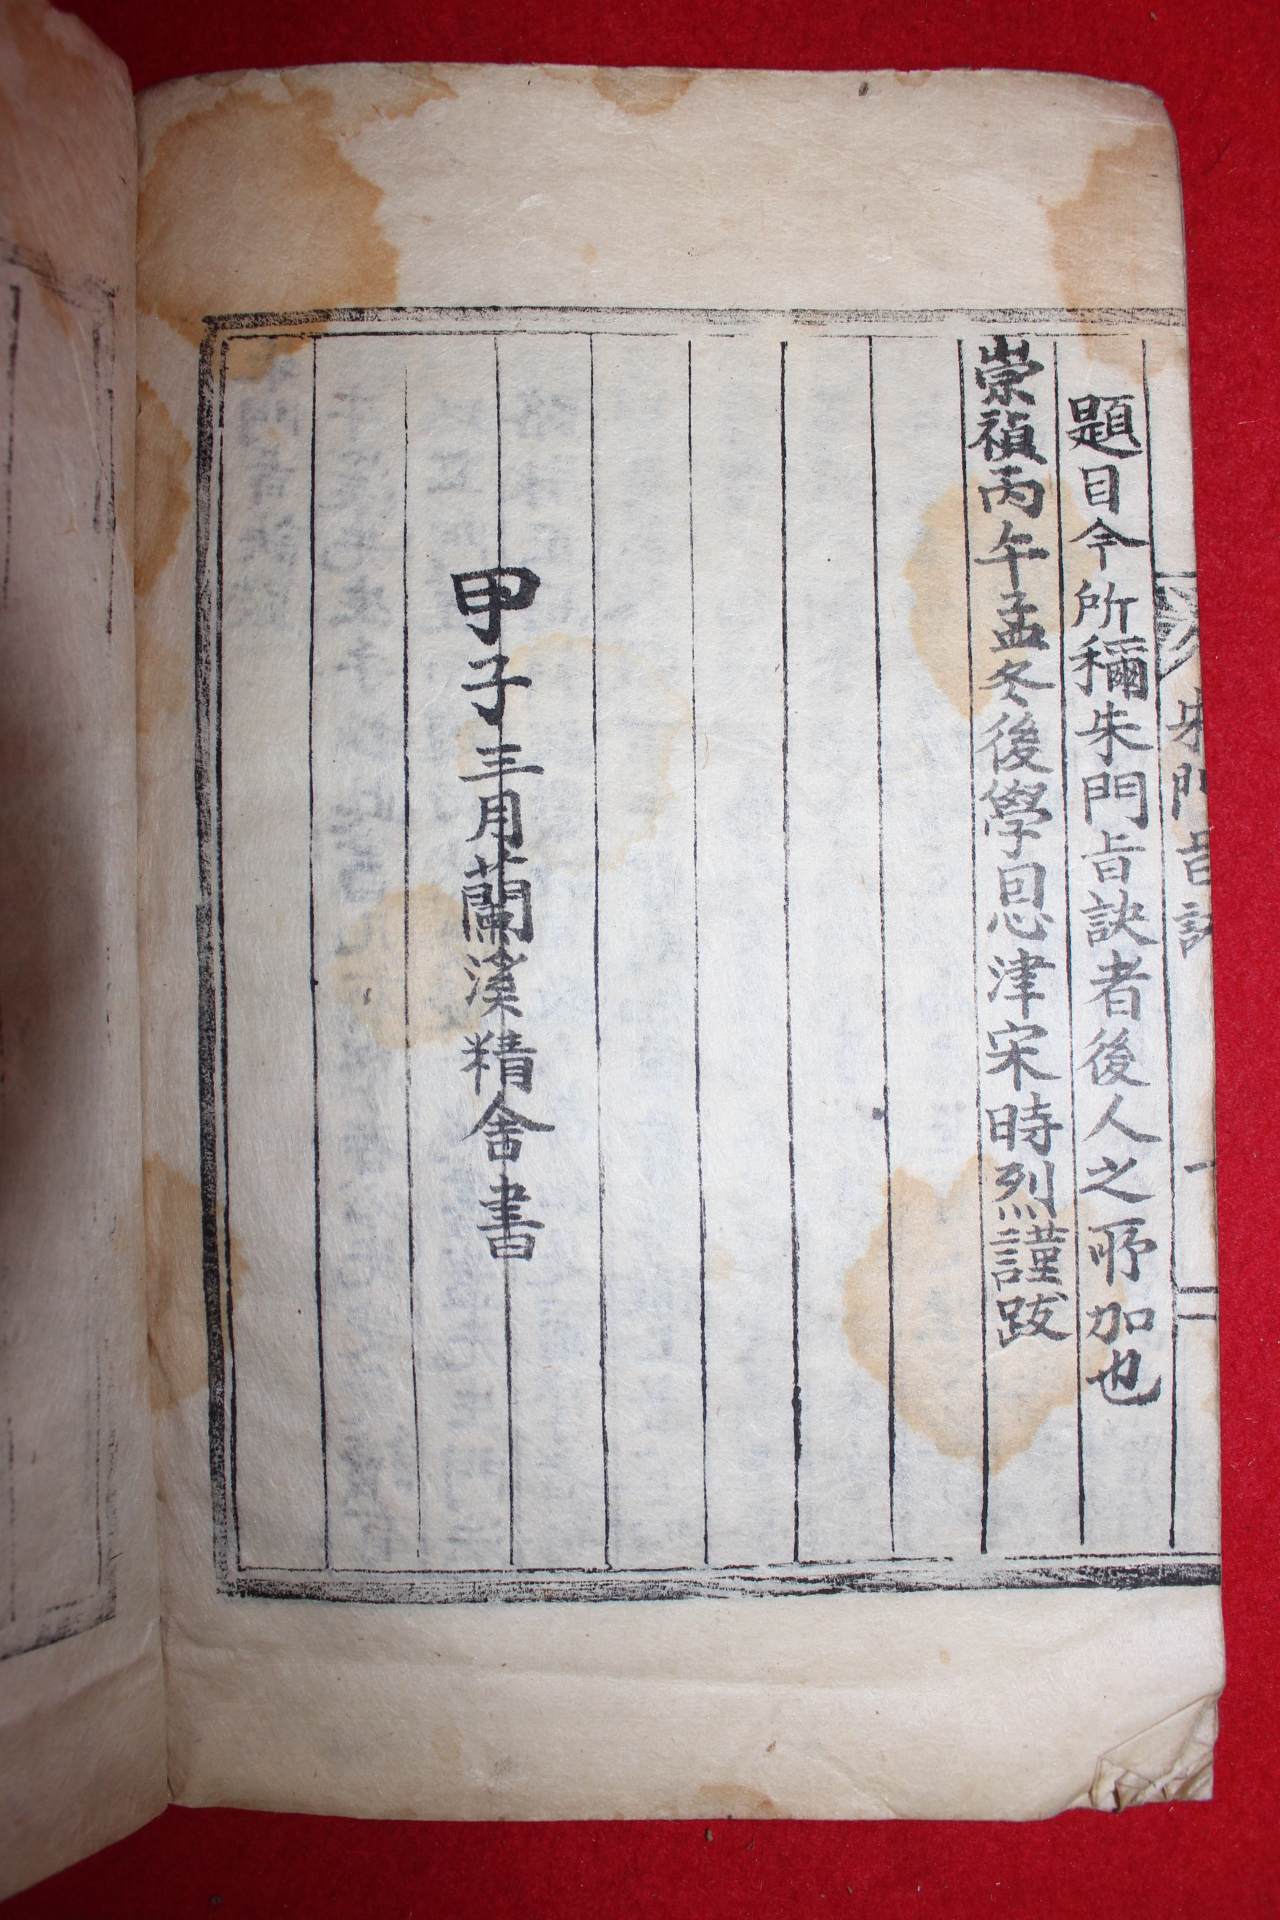 朱門旨訣
題目今所穪朱門旨訣者後人之所加也
崇禎丙午孟冬後學恩津宋時烈謹跋
甲子三月蘭溪精舍書